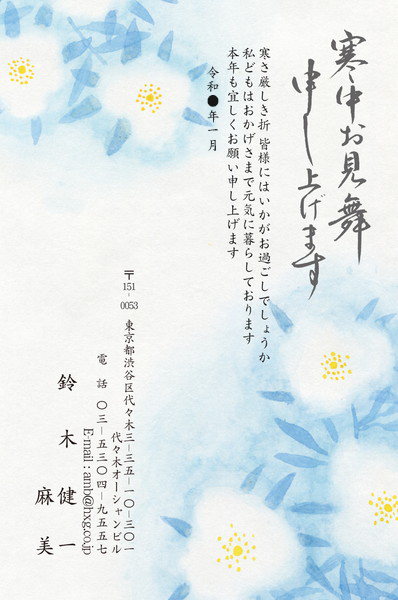 寒中お見舞
申し上げます
寒さ厳しき折 皆様にはいかがお過ごしでしょうか
私どもはおかげさまで元気に暮らしております
本年も宜しくお願い申し上げます
令和●年一月
〒151-0053 東京都渋谷区代々木三-三五-一〇-三〇一
代々木オーシャンビル
電話 〇三-五三〇四-九五五七
E-mail : amb@hxg.co.jp
鈴木健一
麻美